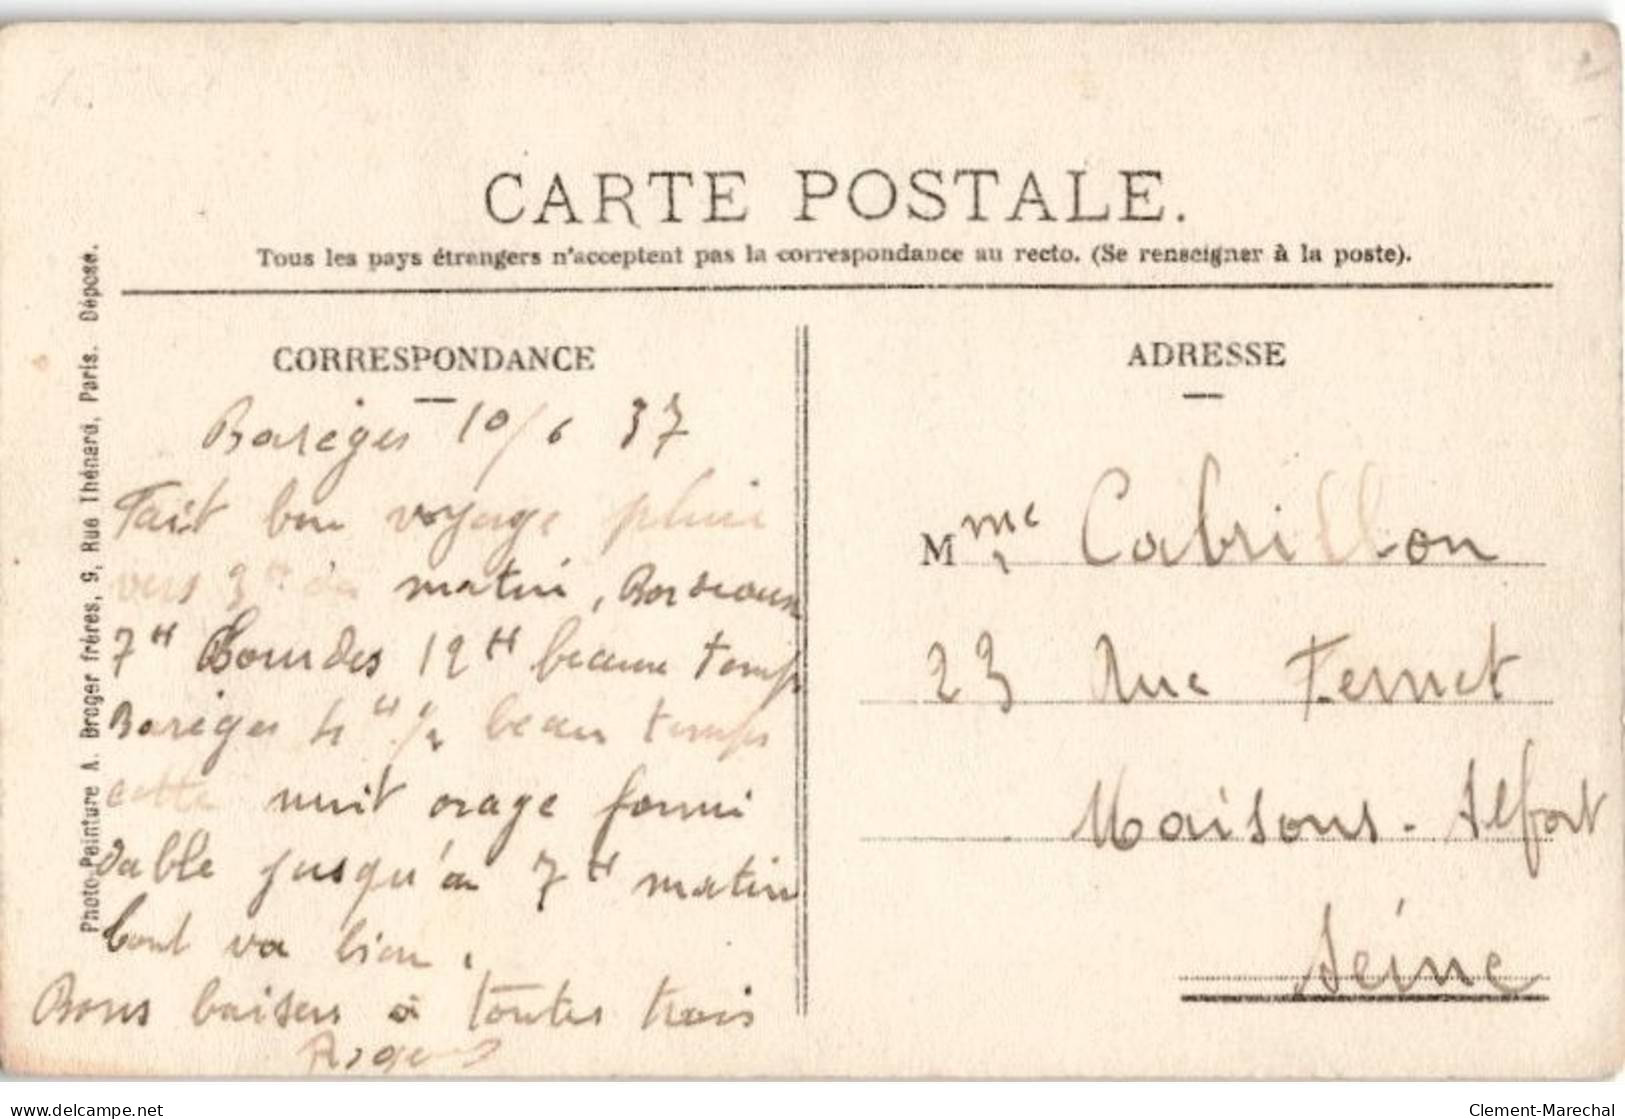 CARTE POSTALE.
Tous les pays étrangers n'acceptent pas la correspondance au recto. (Se renseigner à la poste).
Photo-Peinture A. Breger frères, 9, Rue Thénard, Paris. Déposé.
CORRESPONDANCE
Barèges 10/6 37
Fait bon voyage pluie
vers 3H du matin, Bordeaux
7H Lourdes 12H beau temps
Barèges 4H 1/2 beau temps
cette nuit orage formi
dable jusqu'à 7H matin
tout va bien.
Bons baisers à toutes trois
Roger
ADRESSE
Mme Cabrillon
23 Rue Fernet
Maisons-Alfort
Seine
delcampe.net
Clement-Marechal